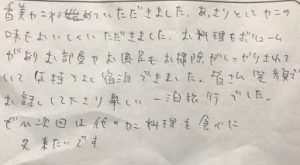 香美カニ初始めていただきました。あっさりとしてカニの
味もおいしくいただきました。お料理もボリューム
がありお部屋やお風呂もお掃除がしっかりされて
いて気持ちよく宿泊できました。皆さん 笑顔で
お話して下さり楽しい一泊旅行でした。
ぜひ次回は他のカニ料理を食べに
又来たいです